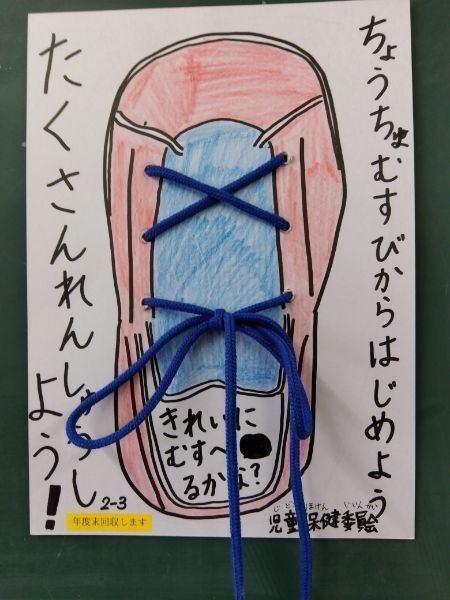 ちょうちょむすびからはじめよう
たくさんれんしゅうし
よう！
きれいに
むすべ
るかな？
2-3
年度末回収します
いいんかい
児童保健委員会